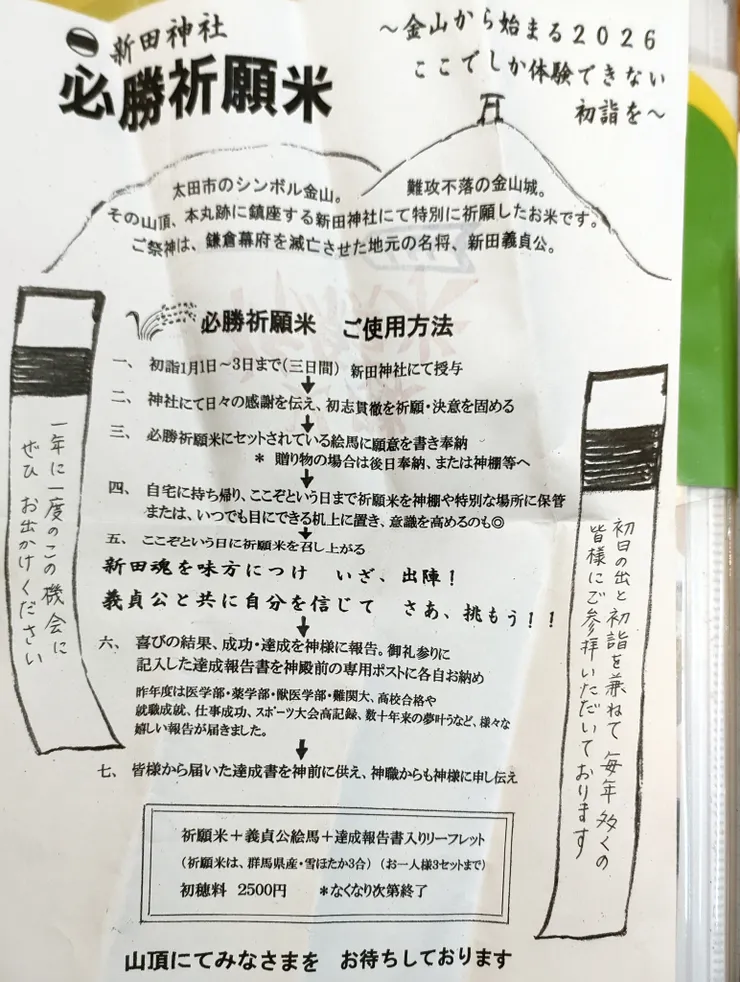 新田神社
必勝祈願米
～金山から始まる2026
ここでしか体験できない
初詣を～
太田市のシンボル金山。 難攻不落の金山城。
その山頂、本丸跡に鎮座する新田神社にて特別に祈願したお米です。
ご祭神は、鎌倉幕府を滅亡させた地元の名将、新田義貞公。
必勝祈願米 ご使用方法
一、 初詣1月1日～3日まで(三日間) 新田神社にて授与
二、 神社にて日々の感謝を伝え、初志貫徹を祈願・決意を固める
三、 必勝祈願米にセットされている絵馬に願意を書き奉納
＊ 贈り物の場合は後日奉納、または神棚等へ
四、 自宅に持ち帰り、ここぞという日まで祈願米を神棚や特別な場所に保管
または、いつでも目にできる机上に置き、意識を高めるのも◎
五、 ここぞという日に祈願米を召し上がる
新田魂を味方につけ いざ、出陣！
義貞公と共に自分を信じて さあ、挑もう！！
六、 喜びの結果、成功・達成を神様に報告。御礼参りに
記入した達成報告書を神殿前の専用ポストに各自お納め
昨年度は医学部・薬学部・獣医学部・難関大、高校合格や
就職成就、仕事成功、スポーツ大会高記録、数十年来の夢叶うなど、様々な
嬉しい報告が届きました。
七、 皆様から届いた達成書を神前に供え、神職からも神様に申し伝え
一年に一度のこの機会に
ぜひ お出かけください
初日の出と初詣を兼ねて 毎年多くの
皆様にご参拝いただいております
祈願米＋義貞公絵馬＋達成報告書入りリーフレット
(祈願米は、群馬県産・雪ほたか3合) (お一人様3セットまで)
初穂料 2500円 ＊なくなり次第終了
山頂にてみなさまを お待ちしております